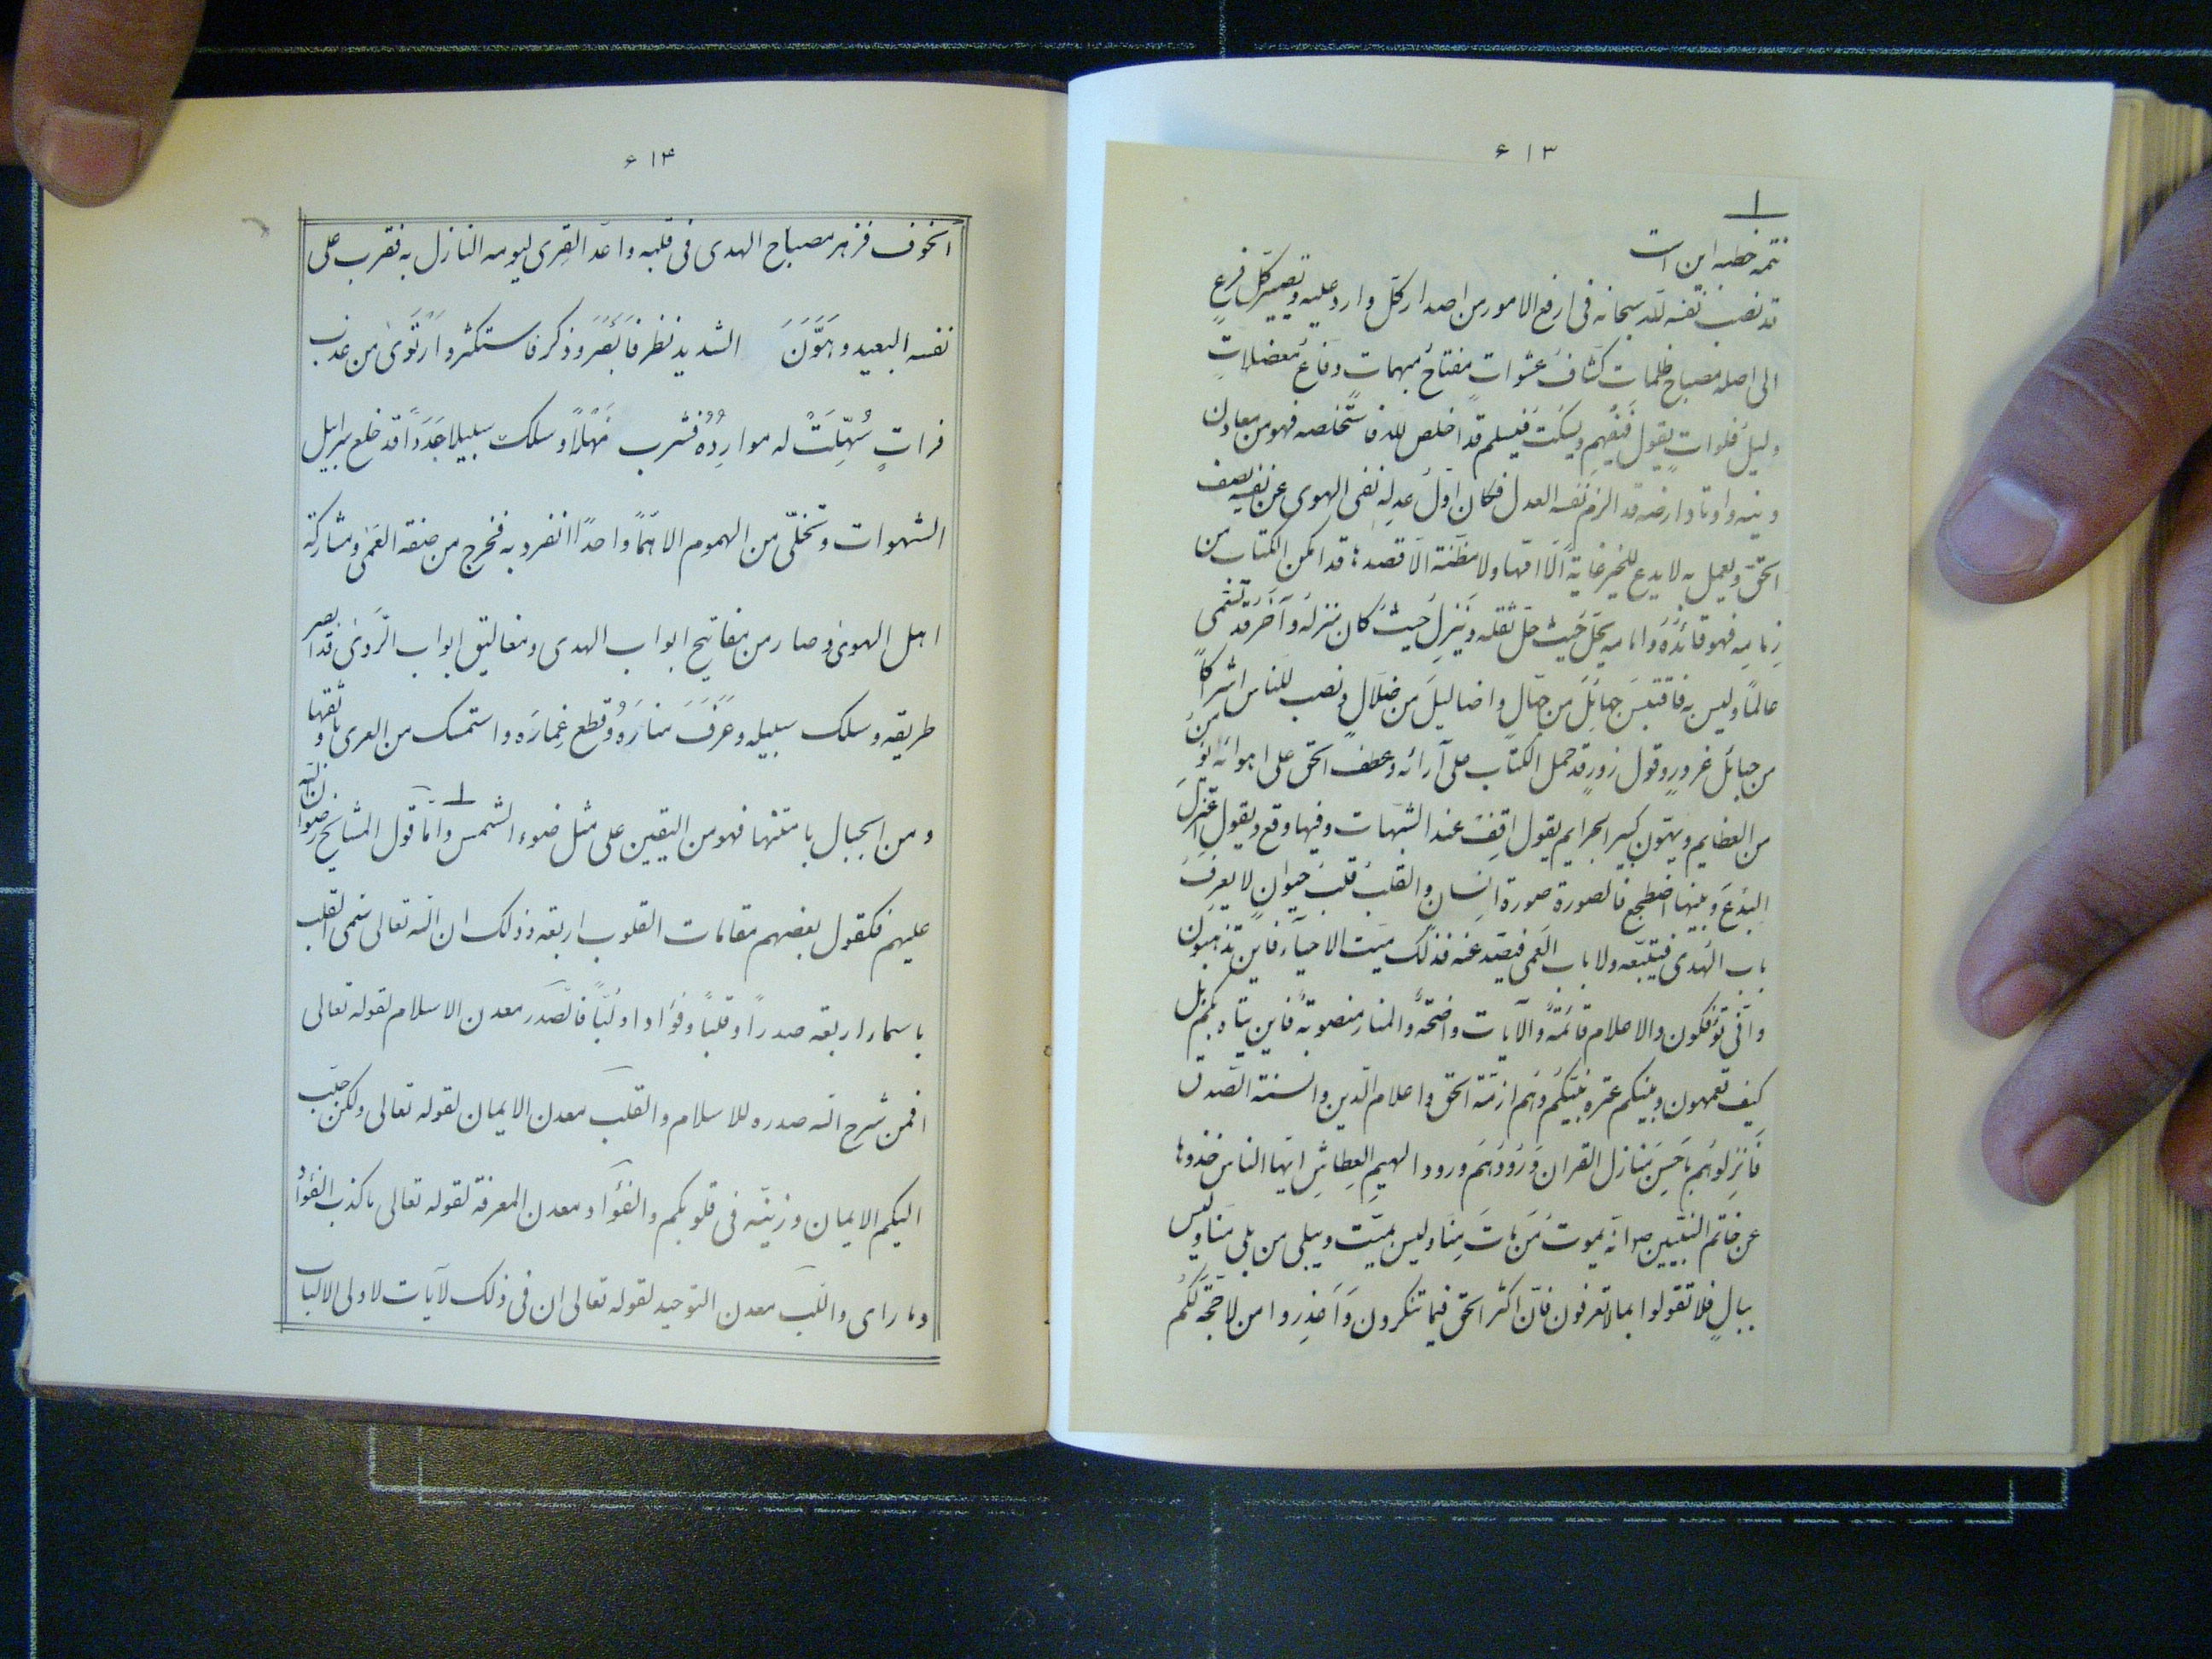 ۶۱۳
تتمه خطبه این است
قد نصب نفسه لله سبحانه فی ارفع الامور من اصدار کلّ وارد علیه و تصییر کلّ فرعٍ
الی اصله مصباح ظلمات کشّاف عشوات مفتاح مبهمات دفّاع معضلاتٍ
دلیل فلواتٍ یقول فیُفهِم و یسکت فیسلم قد اخلص للّه فاستخلصه فهو من معادن
دینه و اوتاد ارضه قد الزم نفسه العدل فکان اوّل عدلِه نفی الهوی عن نفسه یصف
الحقّ و یعمل به لا یدع للخیر غایة الّا امّها و لا مظنّة الّا قصدها قد امکن الکتاب من
زِمامِه فهو قائدُهُ و امامه یحلّ حیث حلّ ثقله و ینزل حیث کان منزله و آخر قد تسمّی
عالمًا و لیس به فاقتبسَ جهائلَ من جهّالٍ و اضالیلَ من ضلّالٍ و نصب للناس اشراکًا
من حبائل غرورٍ و قول زورٍ قد حمل الکتاب علی آرائه و عطف الحق علی اهوائه یؤمنُ
من العظایم و یهوّن کبیر الجرایم یقول اقِفُ عند الشبهات و فیها وقع و یقول اعتزلُ
البِدَعَ و بینها اضطجع فالصورة صورة انسانٍ و القلبُ قلبُ حیوانٍ لا یعرفُ
باب الهُدی فیتبعه و لا باب العَمی فیصدّ عنه فذلک میّت الاحیآء فاین تذهبون
و انّی تؤفکون و الاعلام قائمةٌ و الآیات واضحةٌ و المنار منصوبةٌ فاین یتاه بکم بل
کیف تعمهون و بینکم عترة نبیّکُم و هُم ازمّة الحقّ و اعلام الدّین و السنة الصّدق
فَانزِلوهُم باحسنِ منازل القران وَ رِدُوهُم ورود الهیمِ العِطاشِ ایّها الناس خذوها
عن خاتم النبیّین ص انّه یموتُ مَن ماتَ مِنّا و لیس بمیّت و یبلی من بلی منّا و لیس
ببالٍ فلا تقولوا بما لا تعرفون فانّ اکثر الحقّ فیما تنکرون وَ اَعذِروا من لا حجّة لَکُم
۶۱۴
الخوف فزهر مصباح الهدی فی قلبه و اعدّ القِری لیومه النازل به فقرب علی
نفسه البعید و هَوَّنَ الشدید نظر فابْصَرَ و ذکر فاستکثر و ارْتَوی من عذب
فراتٍ سُهِّلَتْ له موارِدُهُ فشرب نَهْلًا و سلک سبیلا جَدَدًا قد خلع سرابیل
الشهوات و تخلّی من الهموم الا همًّا واحدًا انفرد به فخرج من صفة العَمی و مشارکة
اهل الهوی و صار من مفاتیح ابواب الهدی و مغالیق ابواب الرّدی قد ابصر
طریقه و سلک سبیله و عَرَفَ منارَهُ و قطع غِمارَه و استمسک من العری باوثقها
و من الحبال بامتنها فهو من الیقین علی مثل ضوء الشمس و امّا قول المشایخ رضوان اللّه
علیهم فکقول بعضهم مقامات القلوب اربعه و ذلک ان اللّه تعالی سمی القلب
باسماء اربعه صدرًا و قلبًا و فؤادا و لُبًّا فالصّدر معدن الاسلام لقوله تعالی
افمن شرح اللّه صدره للاسلام و القلب معدن الایمان لقوله تعالی و لکن حبّب
الیکم الایمان و زینّه فی قلوبکم و الفؤاد معدن المعرفة لقوله تعالی ما کذب الفؤادُ
ما رای و اللّب معدن التوحید لقوله تعالی ان فی ذلک لآیات لاولی الالباب